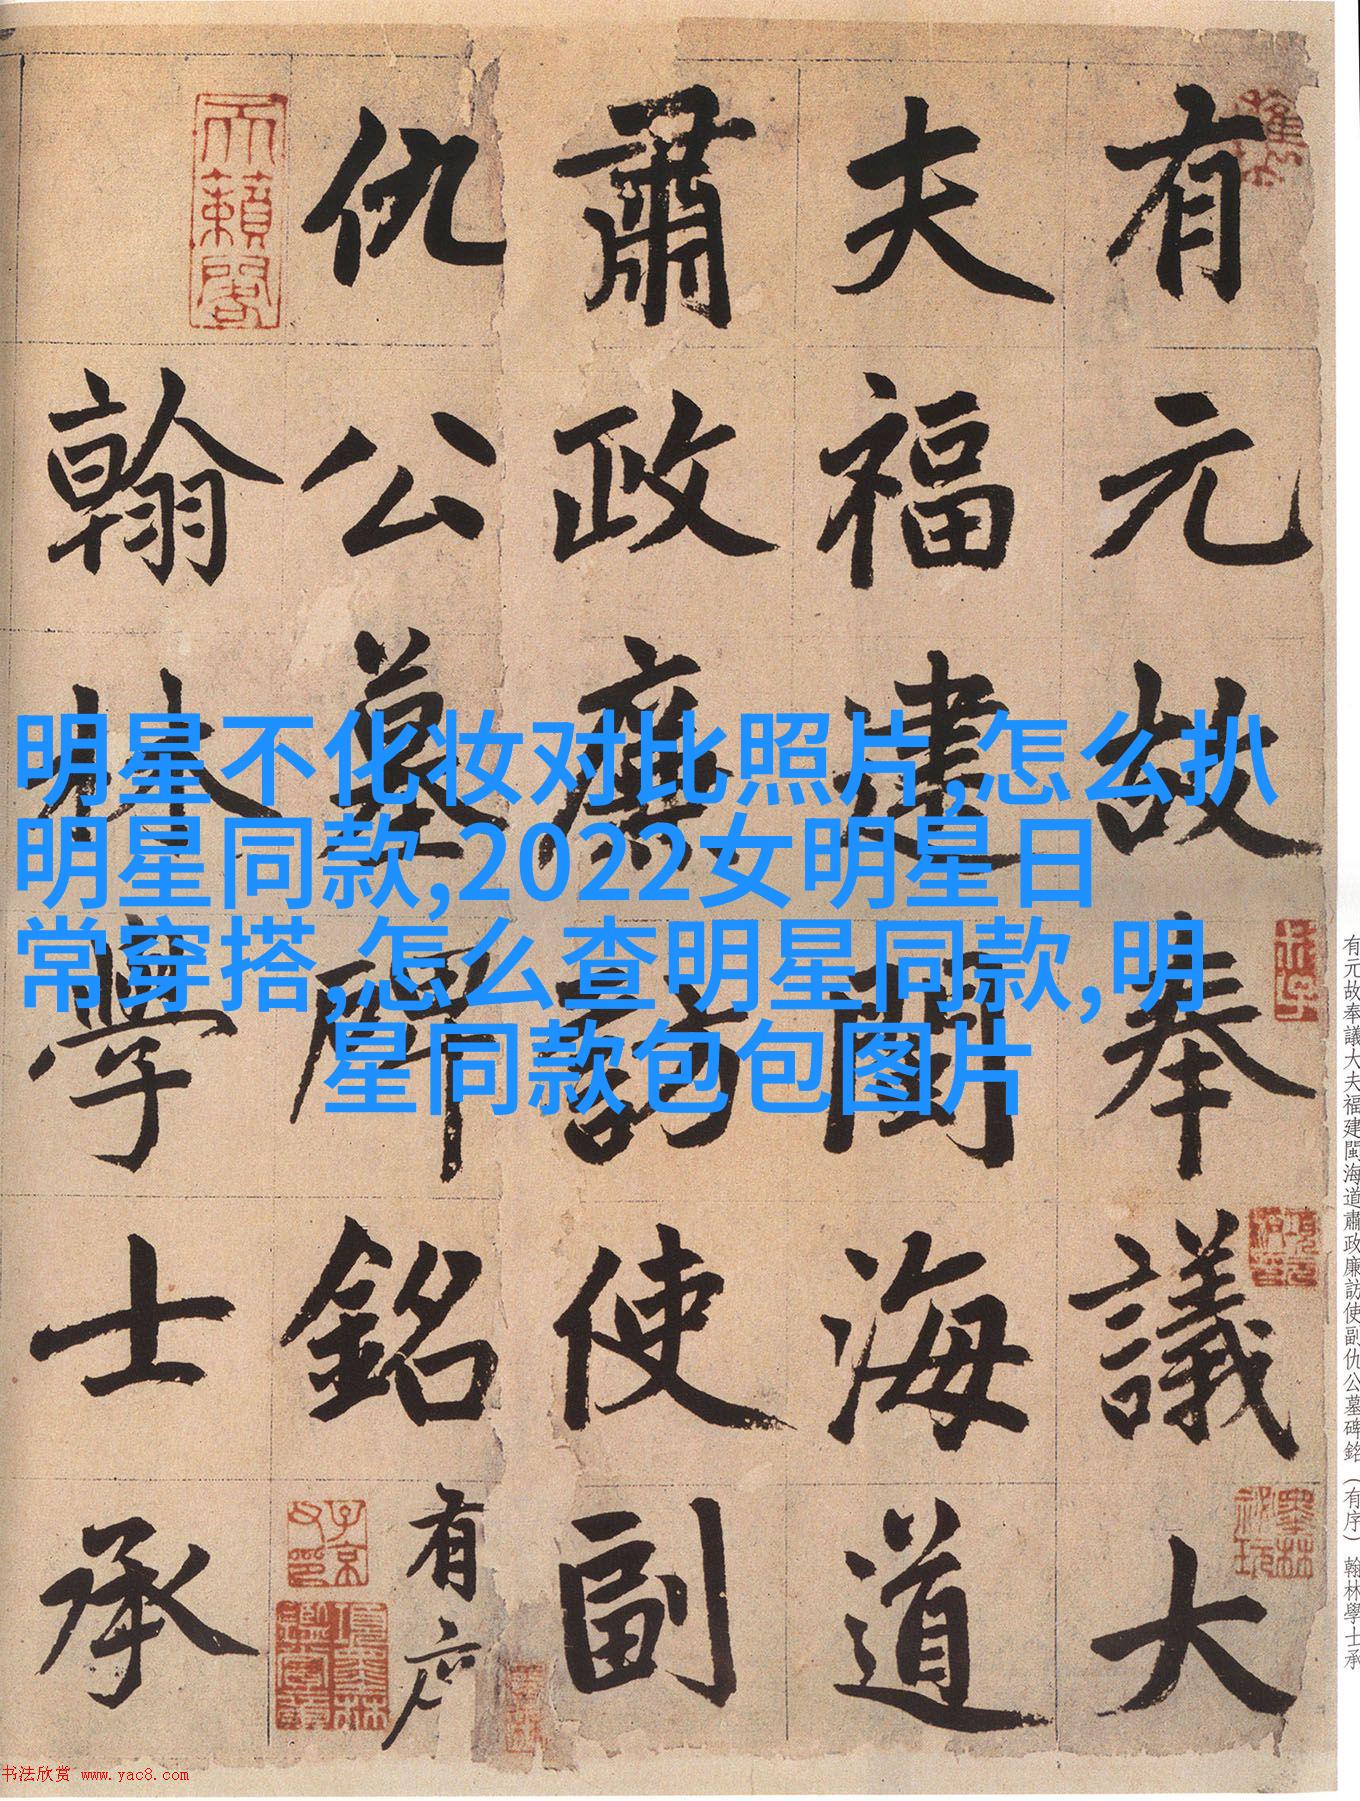 明星不化妆对比照片,怎么扒
明星同款,2022女明星日
常穿搭,怎么查明星同款,明
星同款包包图片
有元故奉議大
夫福建閩海道
肅政廉訪使副
仇公墓碑銘有序
翰林學士承
天籟閣
子京父印
項墨林鑑賞章
墨林祕玩
有元故奉議大夫福建閩海道肅政廉訪使副仇公墓碑銘（有序）翰林學士承
书法欣赏 www.yac8.com